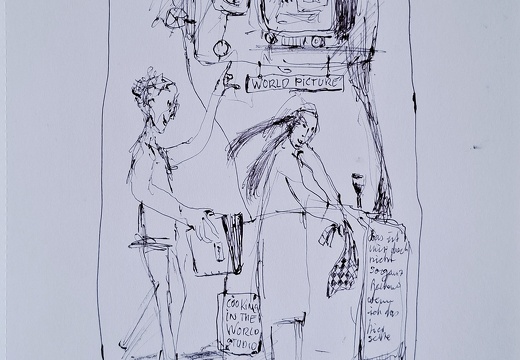 WORLD PICTURE
COOKING
IN THE
WORLD
STUDIO
das ist
mir doch
nicht
so ganz
wenn
ich das
hier
sehe